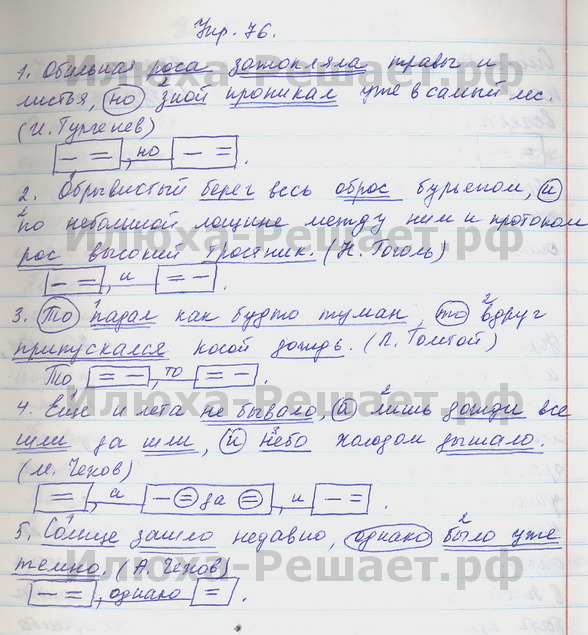 Упр. 76.
1. Обильная роса затопляла травы и
листья, но зной проникал уже в самый лес.
(И. Тургенев)
– =, но – =.
2. Обрывистый берег весь оброс бурьяном, и
по небольшой лощине между ним и протоком
рос высокий тростник. (Н. Гоголь)
– =, и = –.
3. То падал как будто туман, то вдруг
припускался косой дождь. (Л. Толстой)
То = –, то = –.
4. Еще и лета не бывало, а лишь дожди все
шли да шли, и небо холодом дышало.
(М. Чехов)
=, а – = да =, и – =.
5. Солнце зашло недавно, однако было уже
темно. (А. Чехов)
– =, однако =.
Илюха-Решает.рф
Илюха-Решает.рф
Илюха-Решает.рф
Илюха-Решает.рф
Илюха-Решает.рф